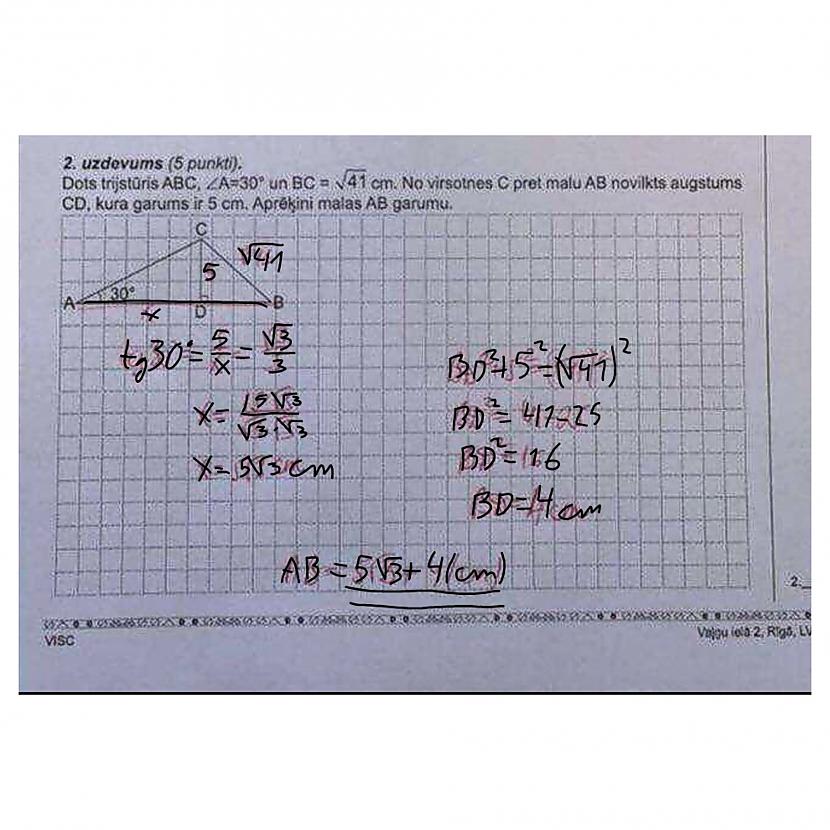 2. uzdevums (5 punkti).
Dots trijstūris ABC, ∠A=30° un BC = √41 cm. No virsotnes C pret malu AB novilkts augstums
CD, kura garums ir 5 cm. Aprēķini malas AB garumu.
C
√41
5
A 30° D B
x
tg30°= 5/x = √3/3
x= 15√3/√3·√3
x= 5√3 cm
BD²+5²=(√41)²
BD²= 41-25
BD²=16
BD=4 cm
AB = 5√3+4(cm)
2.
VISC
Vaļņu ielā 2, Rīgā, LV